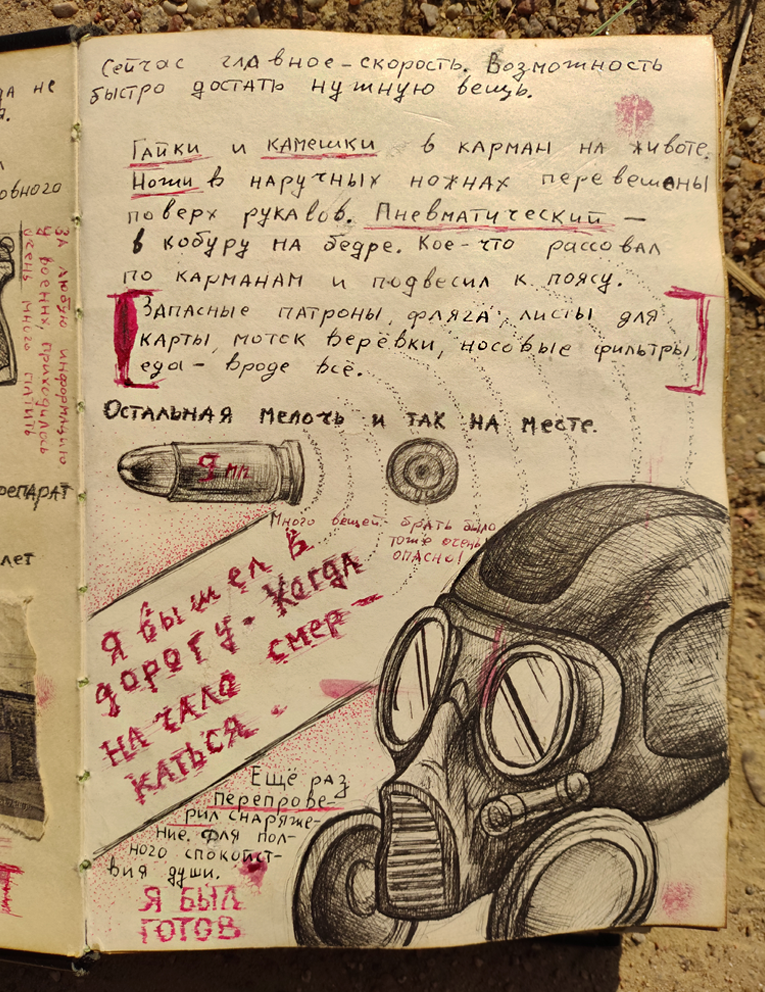 да не
овного
За любую информацию
у военных приходилось
очень много платить
репарат
лет
Сейчас главное – скорость. Возможность
быстро достать нужную вещь.
Гайки и камешки в карман на животе.
Ножи в наручных ножнах перевешаны
поверх рукавов. Пневматический –
в кобуру на бедре. Кое-что рассовал
по карманам и подвесил к поясу.
Запасные патроны, фляга, листы для
карты, моток верёвки, носовые фильтры,
еда – вроде всё.
Остальная мелочь и так на месте.
9 мм
Много вещей брать было
тоже очень
опасно!
Я вышел в
дорогу. Когда
начало смер-
каться.
Ещё раз
перепрове-
рил снаряже-
ние. Для пол-
ного спокойст-
вия души.
Я БЫЛ
ГОТОВ